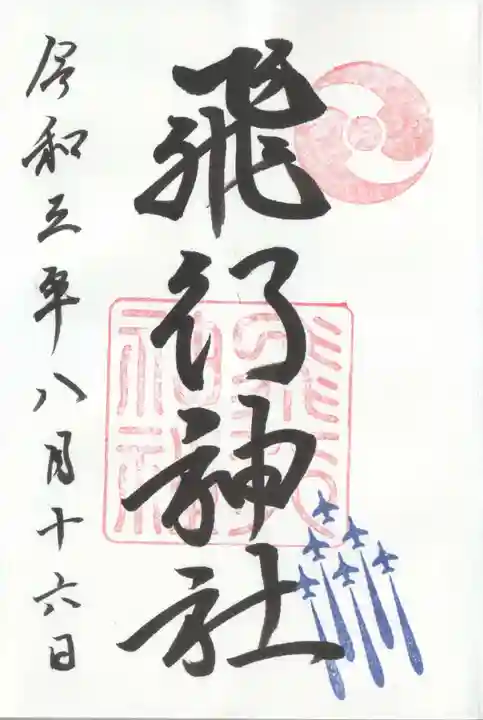 飛行神社
令和三年八月十六日
飛行神社